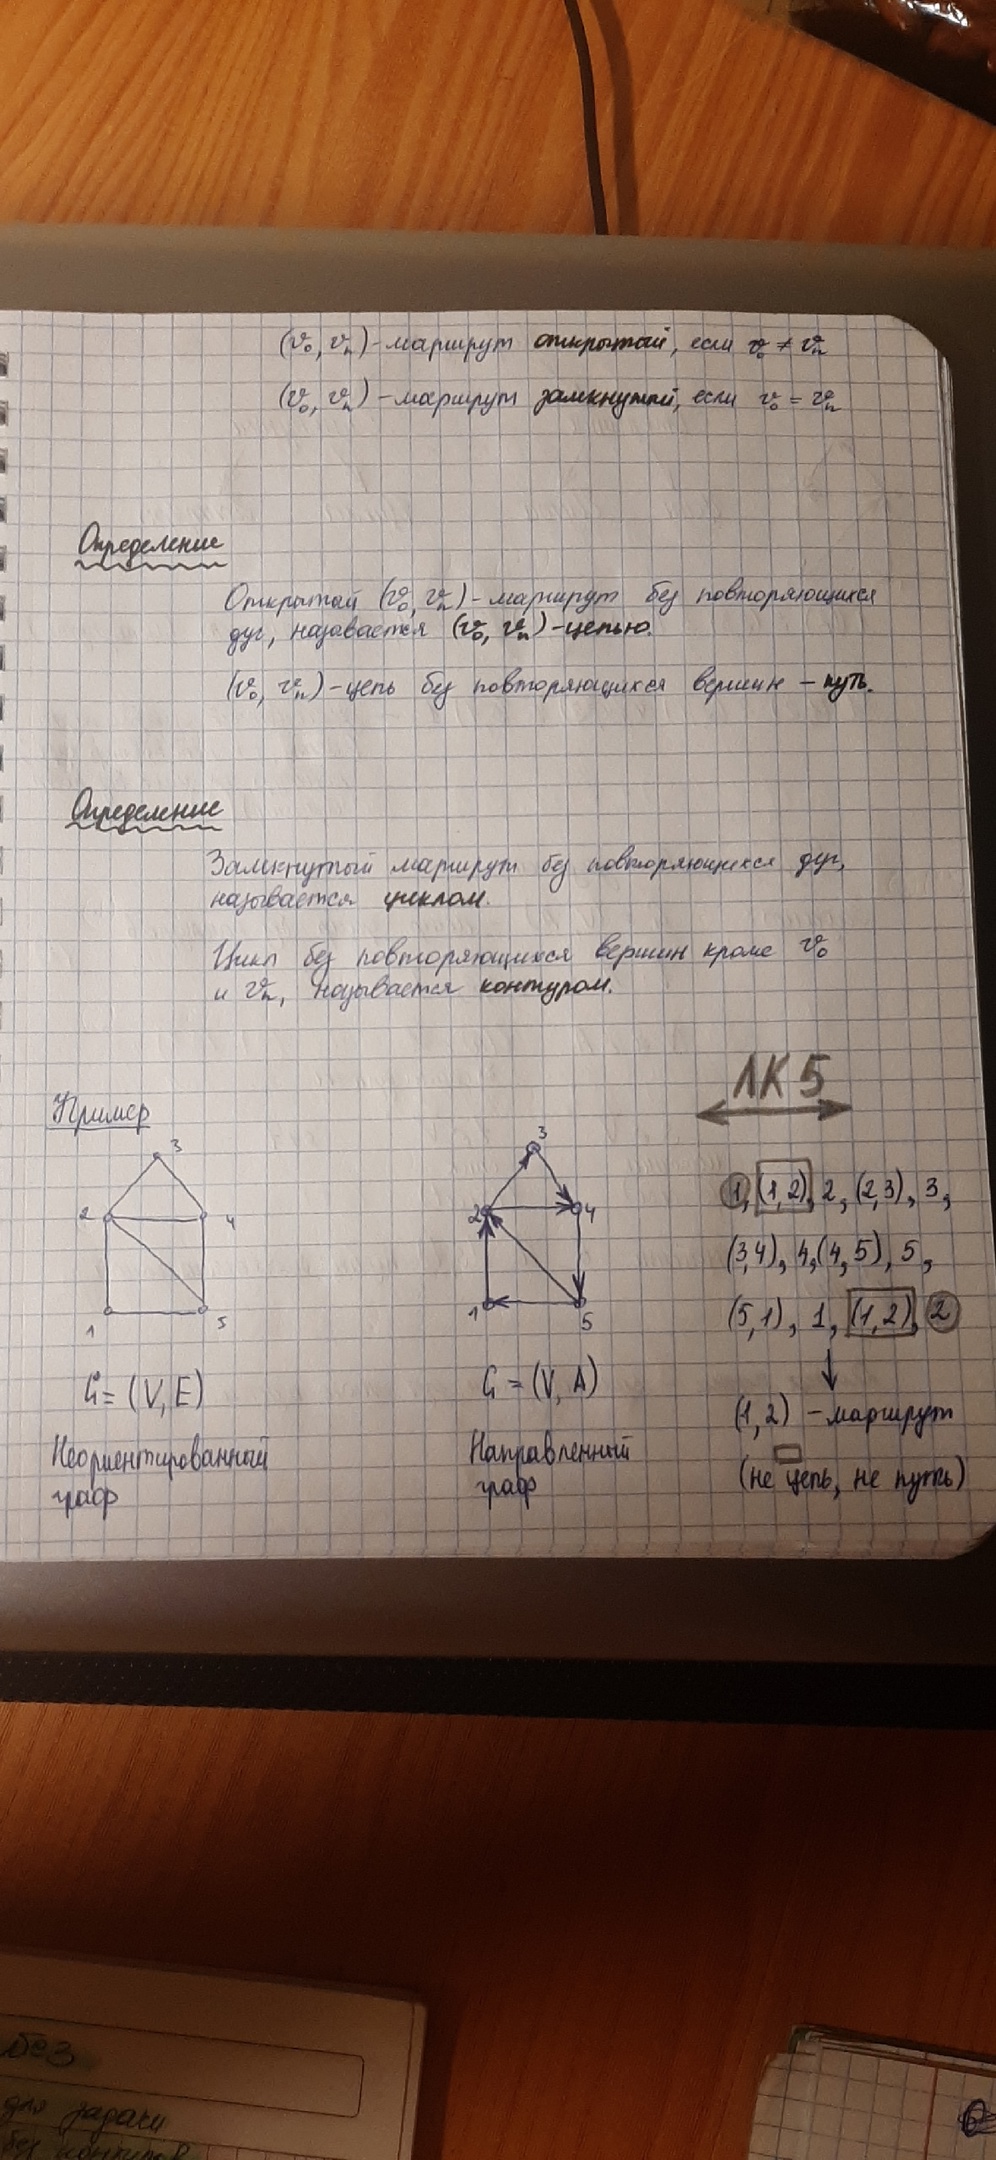 (v₀, vₙ) - маршрут открытый, если v₀ ≠ vₙ
(v₀, vₙ) - маршрут замкнутый, если v₀ = vₙ
Определение
Открытый (v₀, vₙ) - маршрут без повторяющихся
дуг, называется (v₀, vₙ) - цепью.
(v₀, vₙ) - цепь без повторяющихся вершин – путь.
Определение
Замкнутый маршрут без повторяющихся дуг,
называется циклом.
Цикл без повторяющихся вершин кроме v₀
и vₙ, называется контуром.
ЛК 5
Пример
3
2 4
1 5
G = (V, E)
Неориентированный
граф
3
2 4
1 5
G = (V, A)
Направленный
граф
1, (1,2), 2, (2,3), 3,
(3,4), 4, (4,5), 5,
(5,1), 1, (1,2), 2
(1,2) - маршрут
(не цепь, не путь)
без
для задачи
без